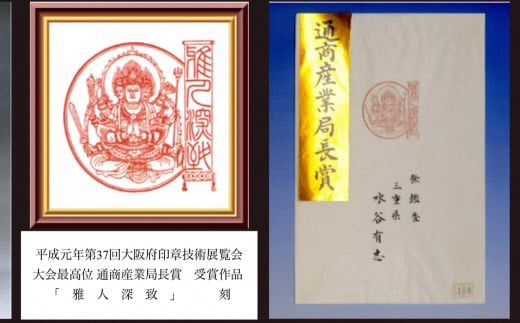 雅人深致
平成元年第37回大阪府印章技術展覧会
大会最高位 通商産業局長賞 受賞作品
「雅人深致」 刻
通商産業局長賞
無鑑査
三重県
水谷有志